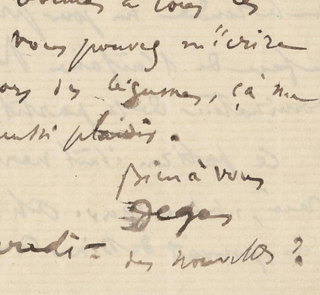 vous pouvez m'écrire
des légumes, çà me
aussi plaisir.
Bien à vous
Degas
des nouvelles ?